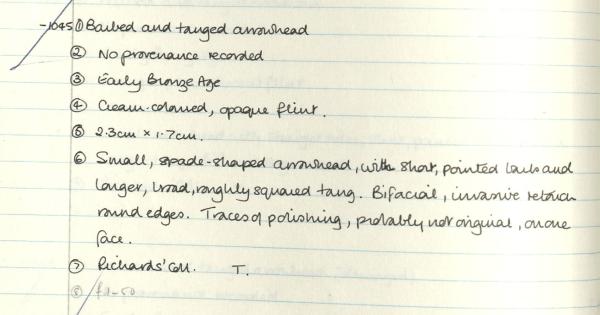 -1045 ① Barbed and tanged arrowhead
② No provenance recorded
③ Early Bronze Age
④ Cream-coloured, opaque flint.
⑤ 2.3cm × 1.7cm.
⑥ Small, spade-shaped arrowhead, with short, pointed barbs and
longer, broad, roughly squared tang. Bifacial, invasive retouch
round edges. Traces of polishing, probably not original, on one
face.
⑦ Richards' Coll. T.
⑧ £1-50